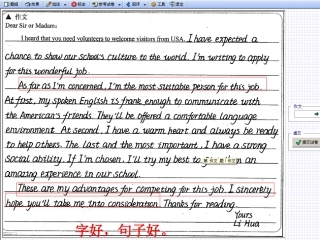 ▲ 作文
Dear Sir or Madam:
I heard that you need volunteers to welcome visitors from USA. I have expected a
chance to show our school's culture to the world. I'm writing to apply
for this wonderful job.
As far as I'm concerned, I'm the most suitable person for this job.
At first, my spoken English is frank enough to communicate with
the American's friends. They'll be offered a comfortable language
environment. At second, I have a warm heart and always be ready
to help others. The last and the most important, I have a strong
social ability. If I'm chosen, I'll try my best to an
amazing experience in our school.
These are my advantages for competing for this job. I sincerely
hope you'll take me into consideration. Thanks for reading.
Yours
Li Hua
字好，句子好。
作文